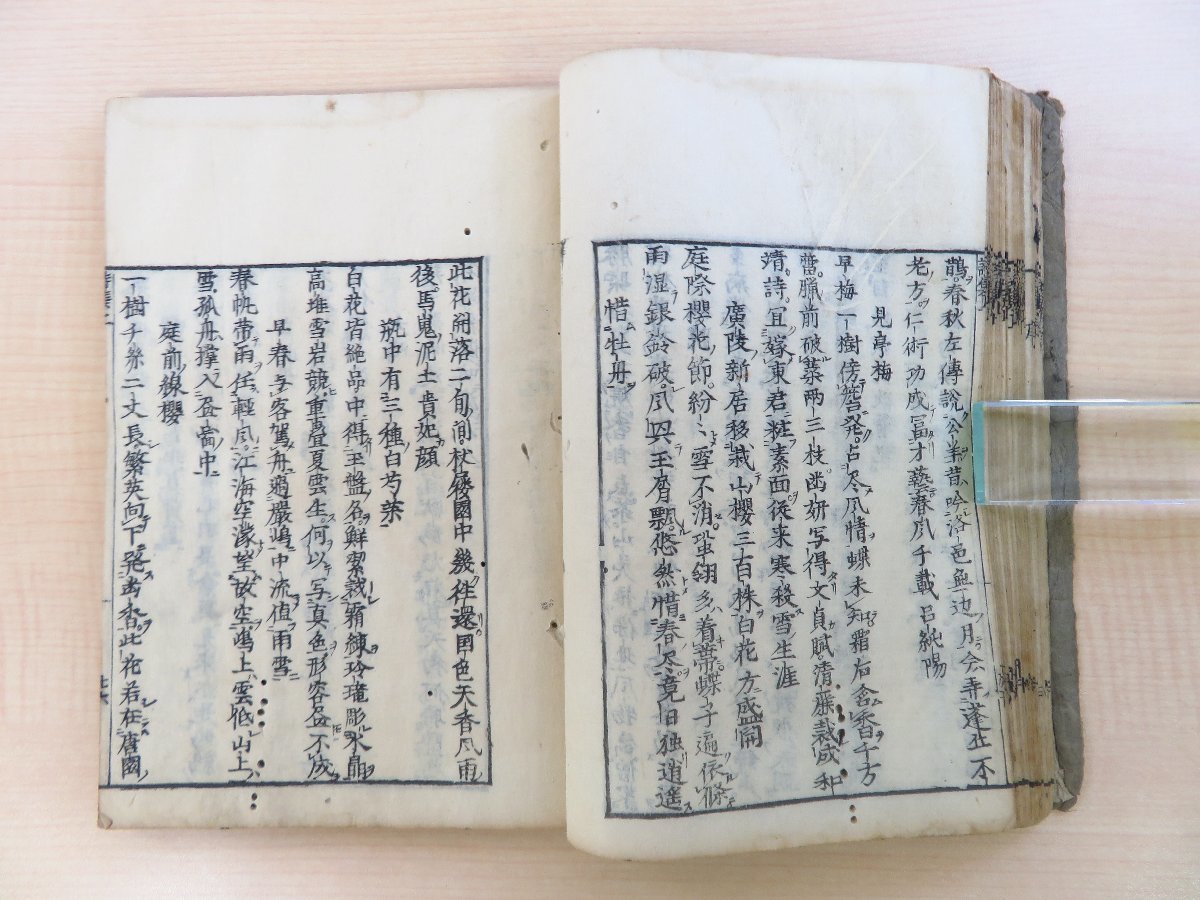 鵲春秋左傳說公羊昔吟洛邑無边月会弄蓬丘不
老方仁術功成冨才藝春風千載呂純陽
見亭梅
早梅一樹傍簷発占尽風情蝶未知霜后含香千方
蕾臘前破蘂両三枝幽妍写得文貞賦清雅裁成和
靖詩宜嫁東君粧素面従来寒殺雪生涯
廣陵新居移栽山櫻三百株白花方盛開
庭際櫻花節紛〻雪不消蛩翎多着蔕蝶子遍依條
雨湿銀鈴破風吹玉屑飄悠然惜春尽竟日独逍遥
惜牡丹
此花開落二旬間杖屦國中幾往還国色天香風雨
後馬嵬泥土貴妃顔
瓶中有三種白芍薬
白花皆絶品中得玉盤名鮮潔裁霜練玲瓏彫氷晶
高堆雪岩競重畳夏雲生何以写真色形容盡不成
早春与客駕舟過嚴嶋中流値雨雪
春帆帯雨任輕風江海空濛望欲空嶋上雲低山上
雪孤舟撑入盆窗中
庭前線櫻
一樹千糸二丈長繁英向下発幽香此花若在唐國